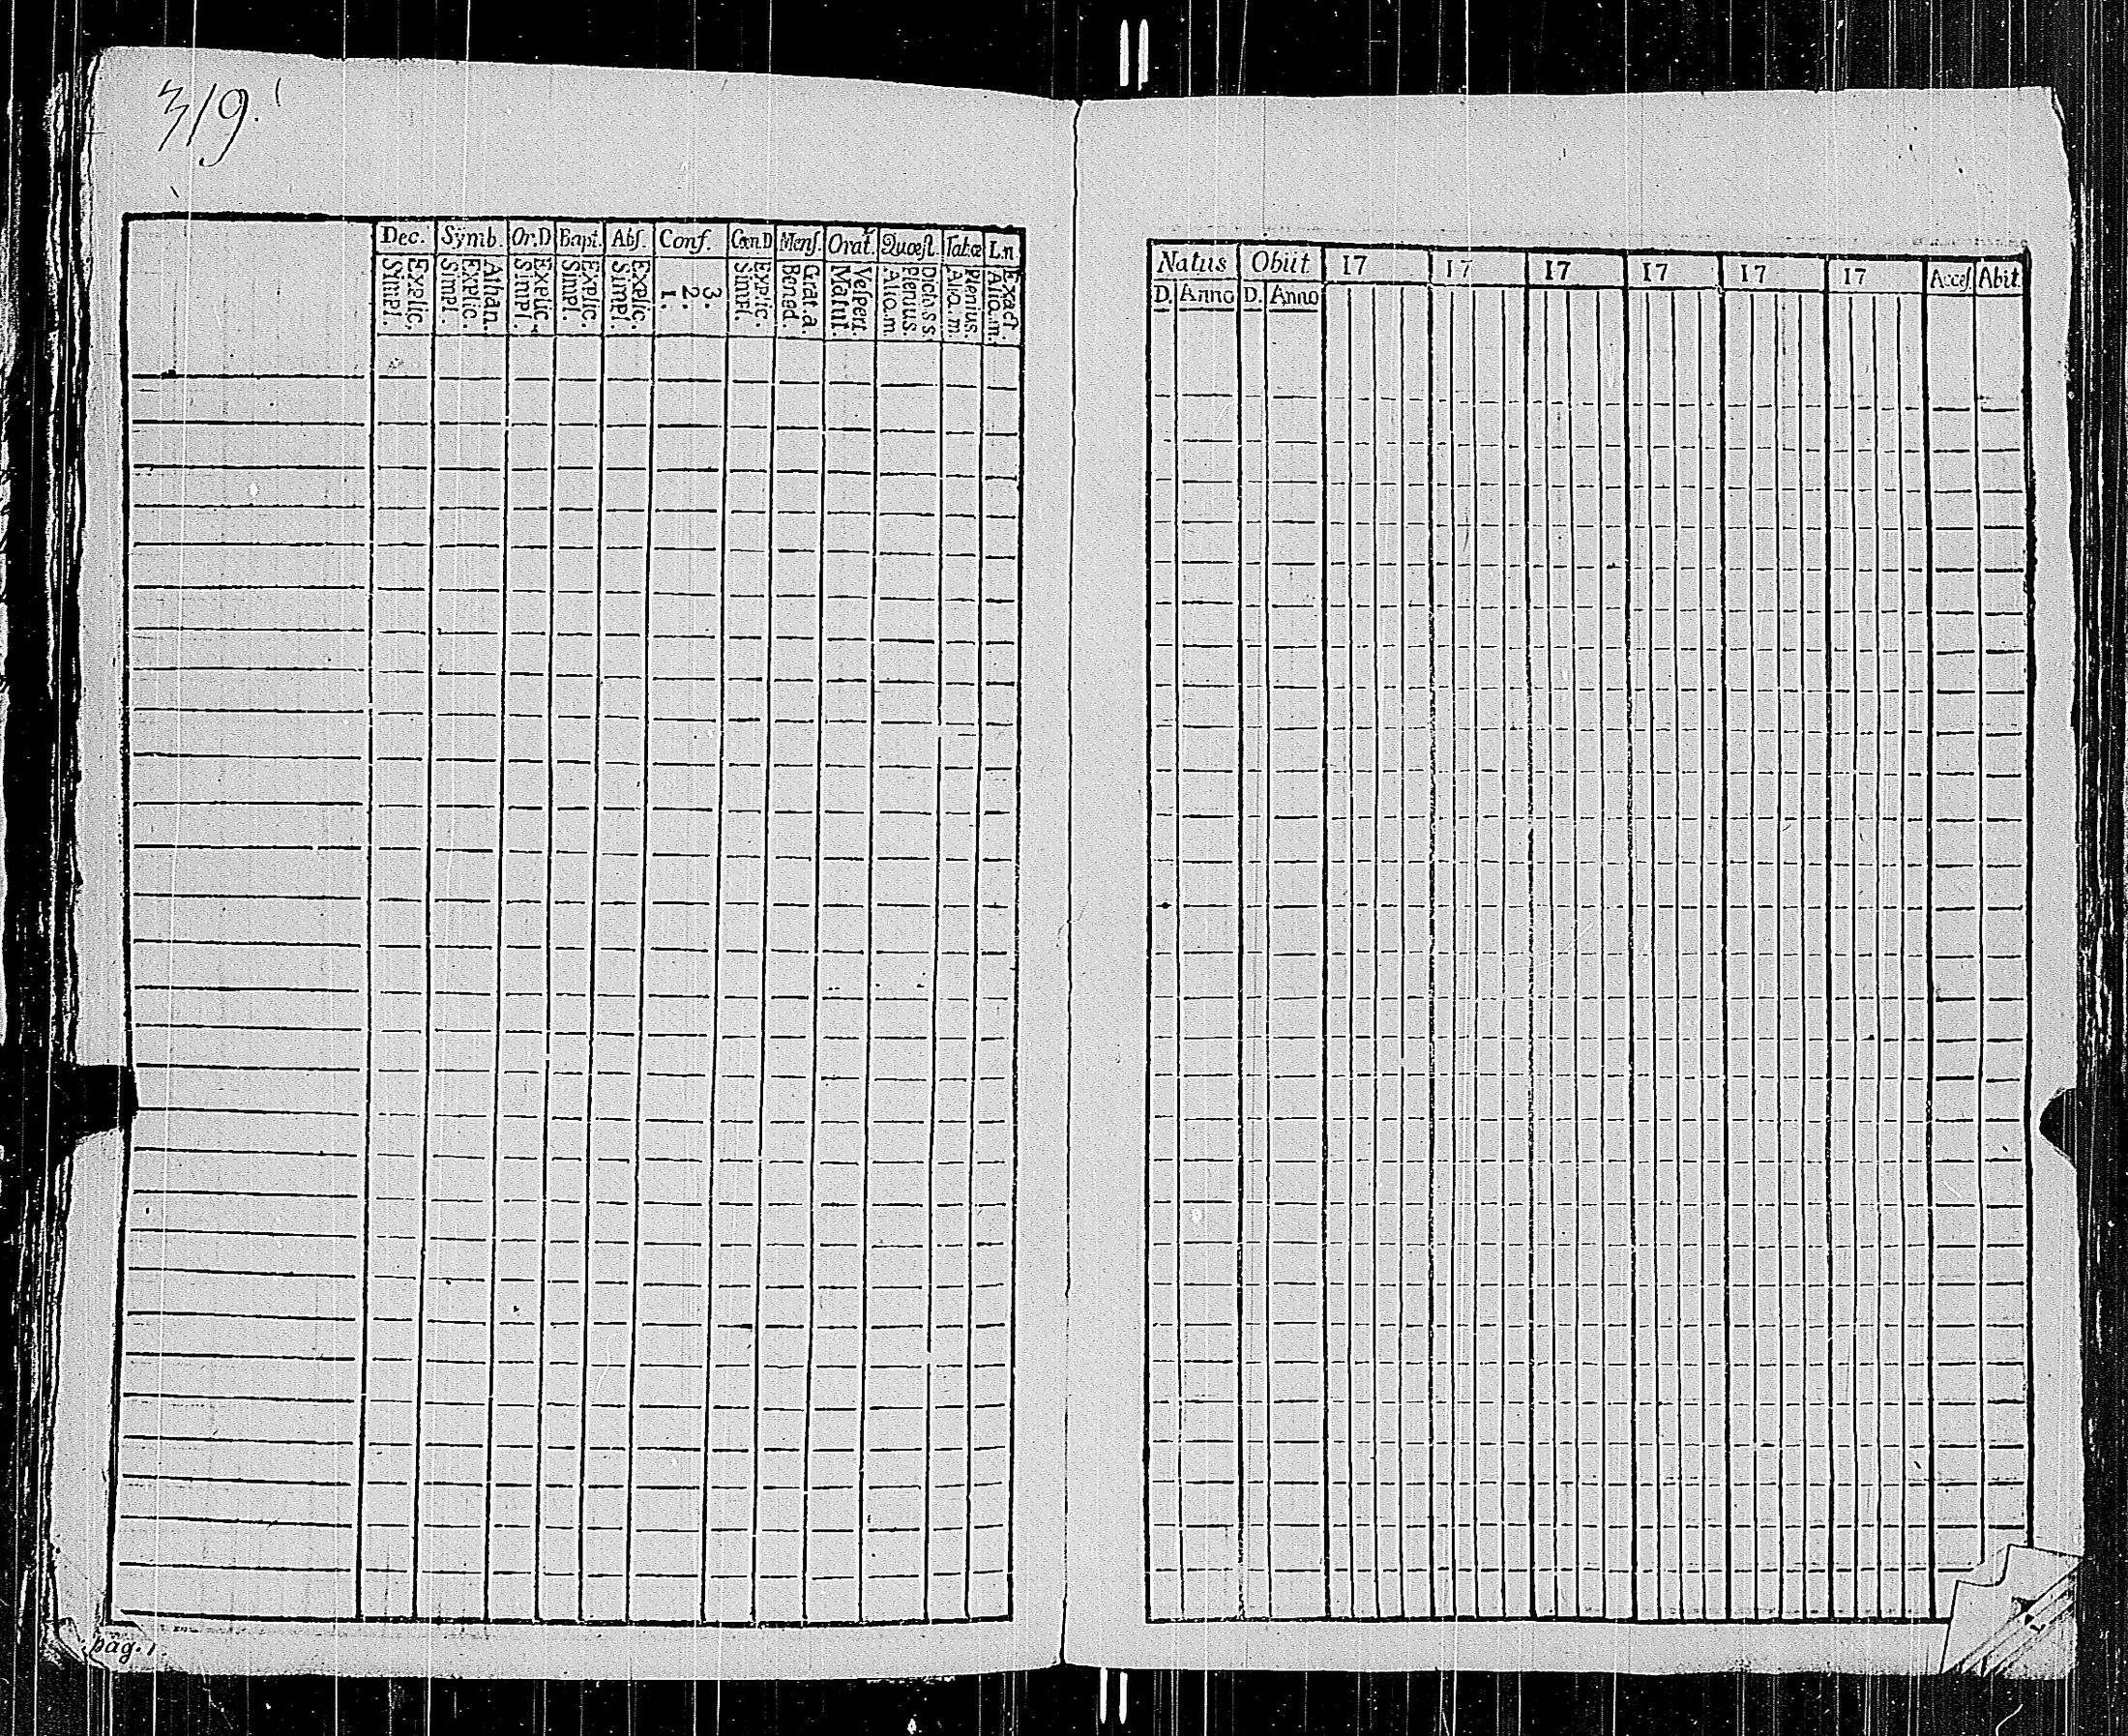 319.
Dec. Symb. Or.D Bapt. Abs. Conf. Cœn.D Mens. Orat. Quæst. Tabæ L.n
Explic. Simpl.
Athan. Explic. Simpl.
Explic. Simpl.
Explic. Simpl.
Explic. Simpl.
3. 2. 1.
Explic. Simpl.
Grat.a. Bened.
Vesperi. Matut.
Dict.s.s. Plenius. Alio.m
Plenius. Alio.m.
Exact. Alio.m.
pag. 1
Natus Obiit 17 17 17 17 17 17 Acces. Abit.
D. Anno D. Anno